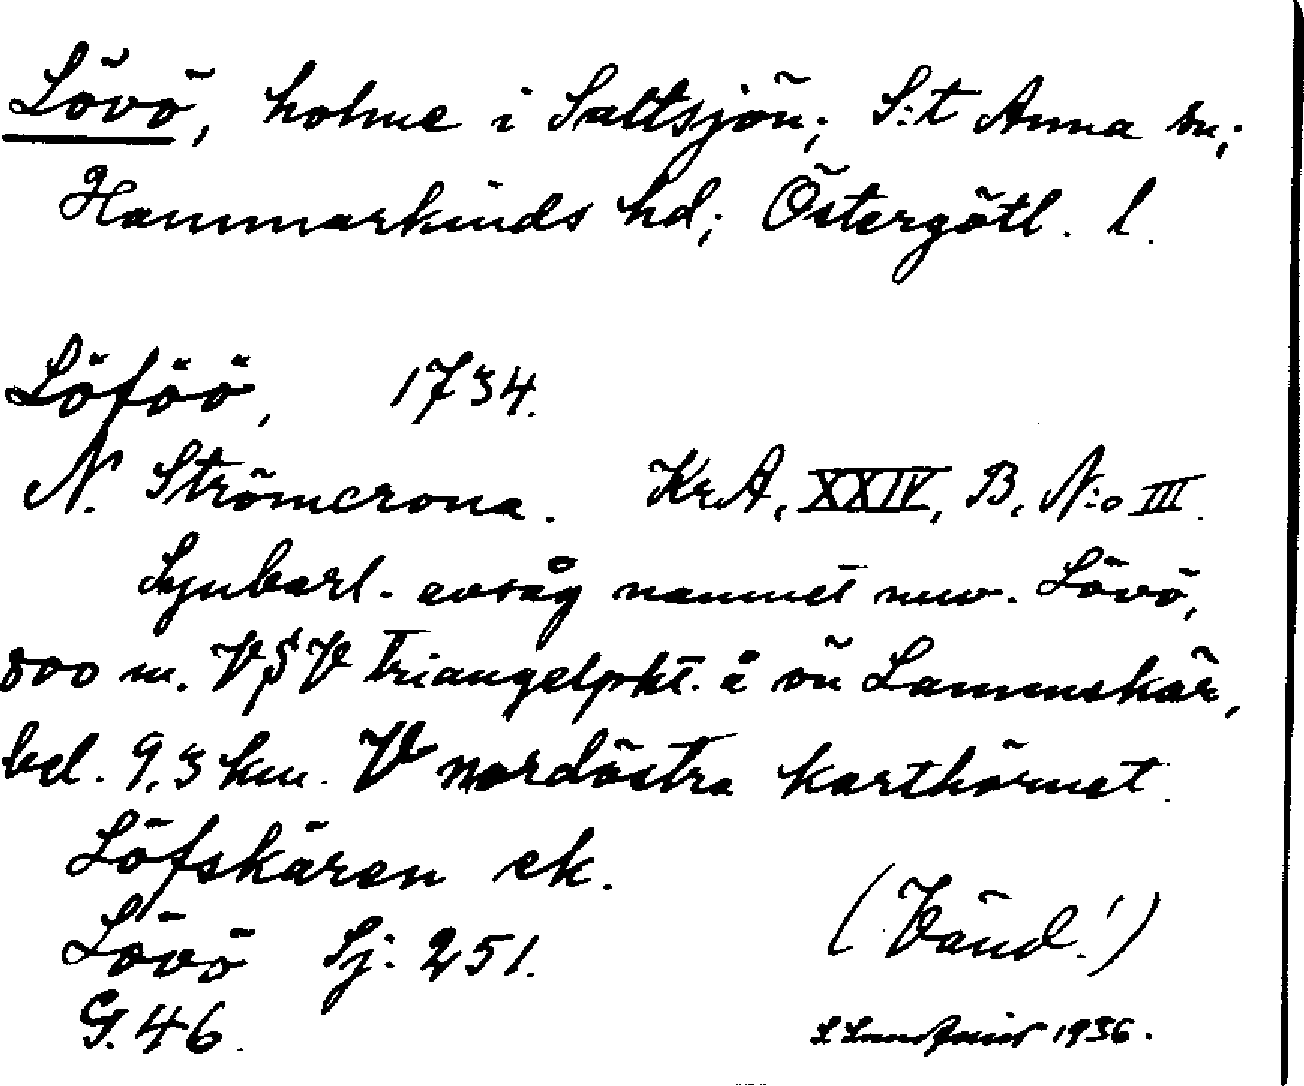 Lövö, holme i Saltsjön; S:t Anna sn;
Hammarkinds hd; Östergötl. l.
Löföö, 1734.
N. Strömcrona. KrA, XXIV, B, N:o III.
Synbarl. avsåg namnet nuv. Lövö,
800 m. VSV triangelpkt. å ön Lammskär,
bel. 9,3 km. V nordöstra karthörnet.
Löfskären ek.
Lövö Sj: 251.
G. 46.
(Vänd!)
1936.